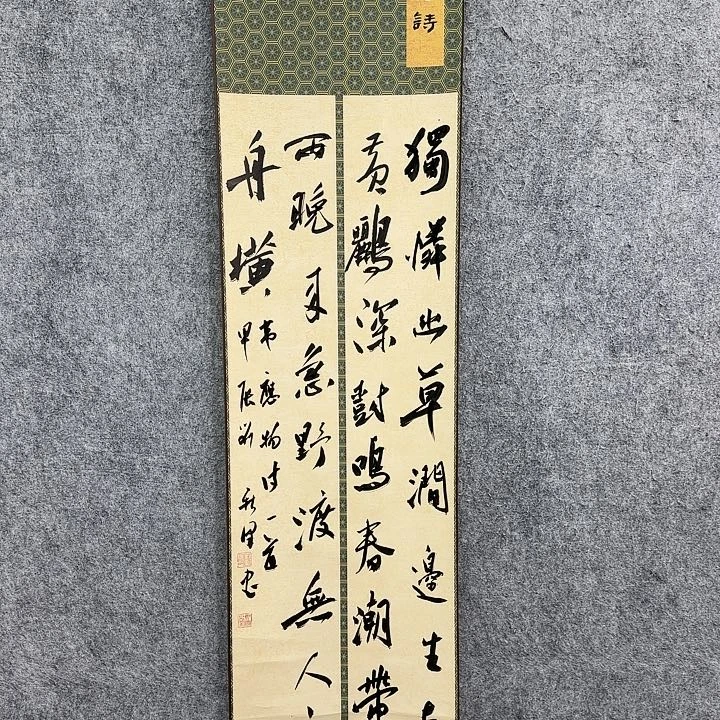 詩
獨憐幽草澗邊生
黃鸝深樹鳴春潮帶
雨晚来急野渡無人
舟橫
韋應物詩一首
甲辰
書